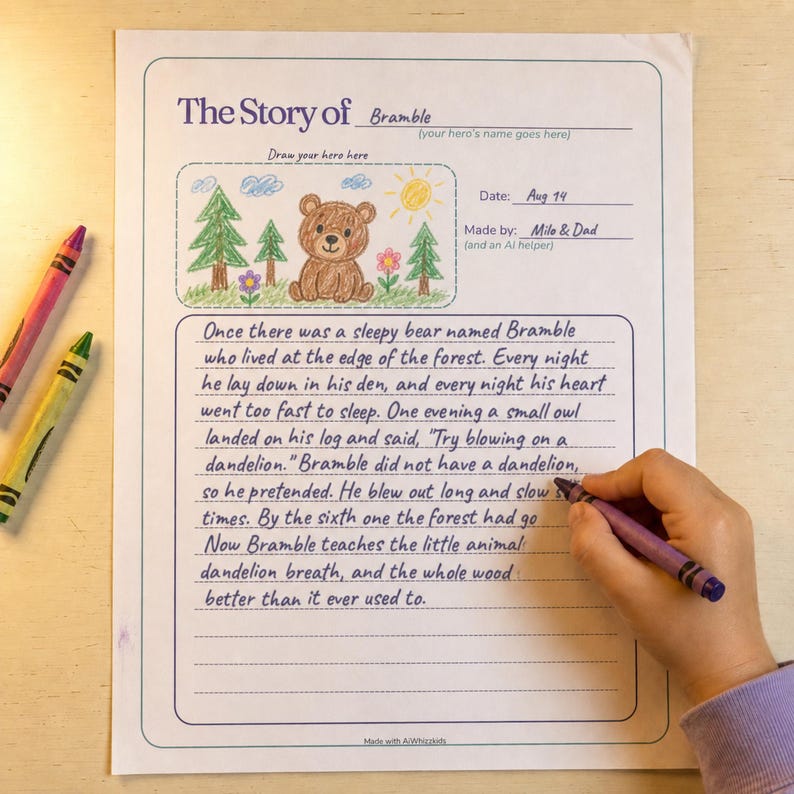 The Story of Bramble
(your hero's name goes here)
Draw your hero here
Date: Aug 14
Made by: Milo & Dad
(and an AI helper)
Once there was a sleepy bear named Bramble
who lived at the edge of the forest. Every night
he lay down in his den, and every night his heart
went too fast to sleep. One evening a small owl
landed on his log and said, "Try blowing on a
dandelion." Bramble did not have a dandelion,
so he pretended. He blew out long and slow
times. By the sixth one the forest had go
Now Bramble teaches the little animal
dandelion breath, and the whole wood
better than it ever used to.
Made with AiWhizzkids